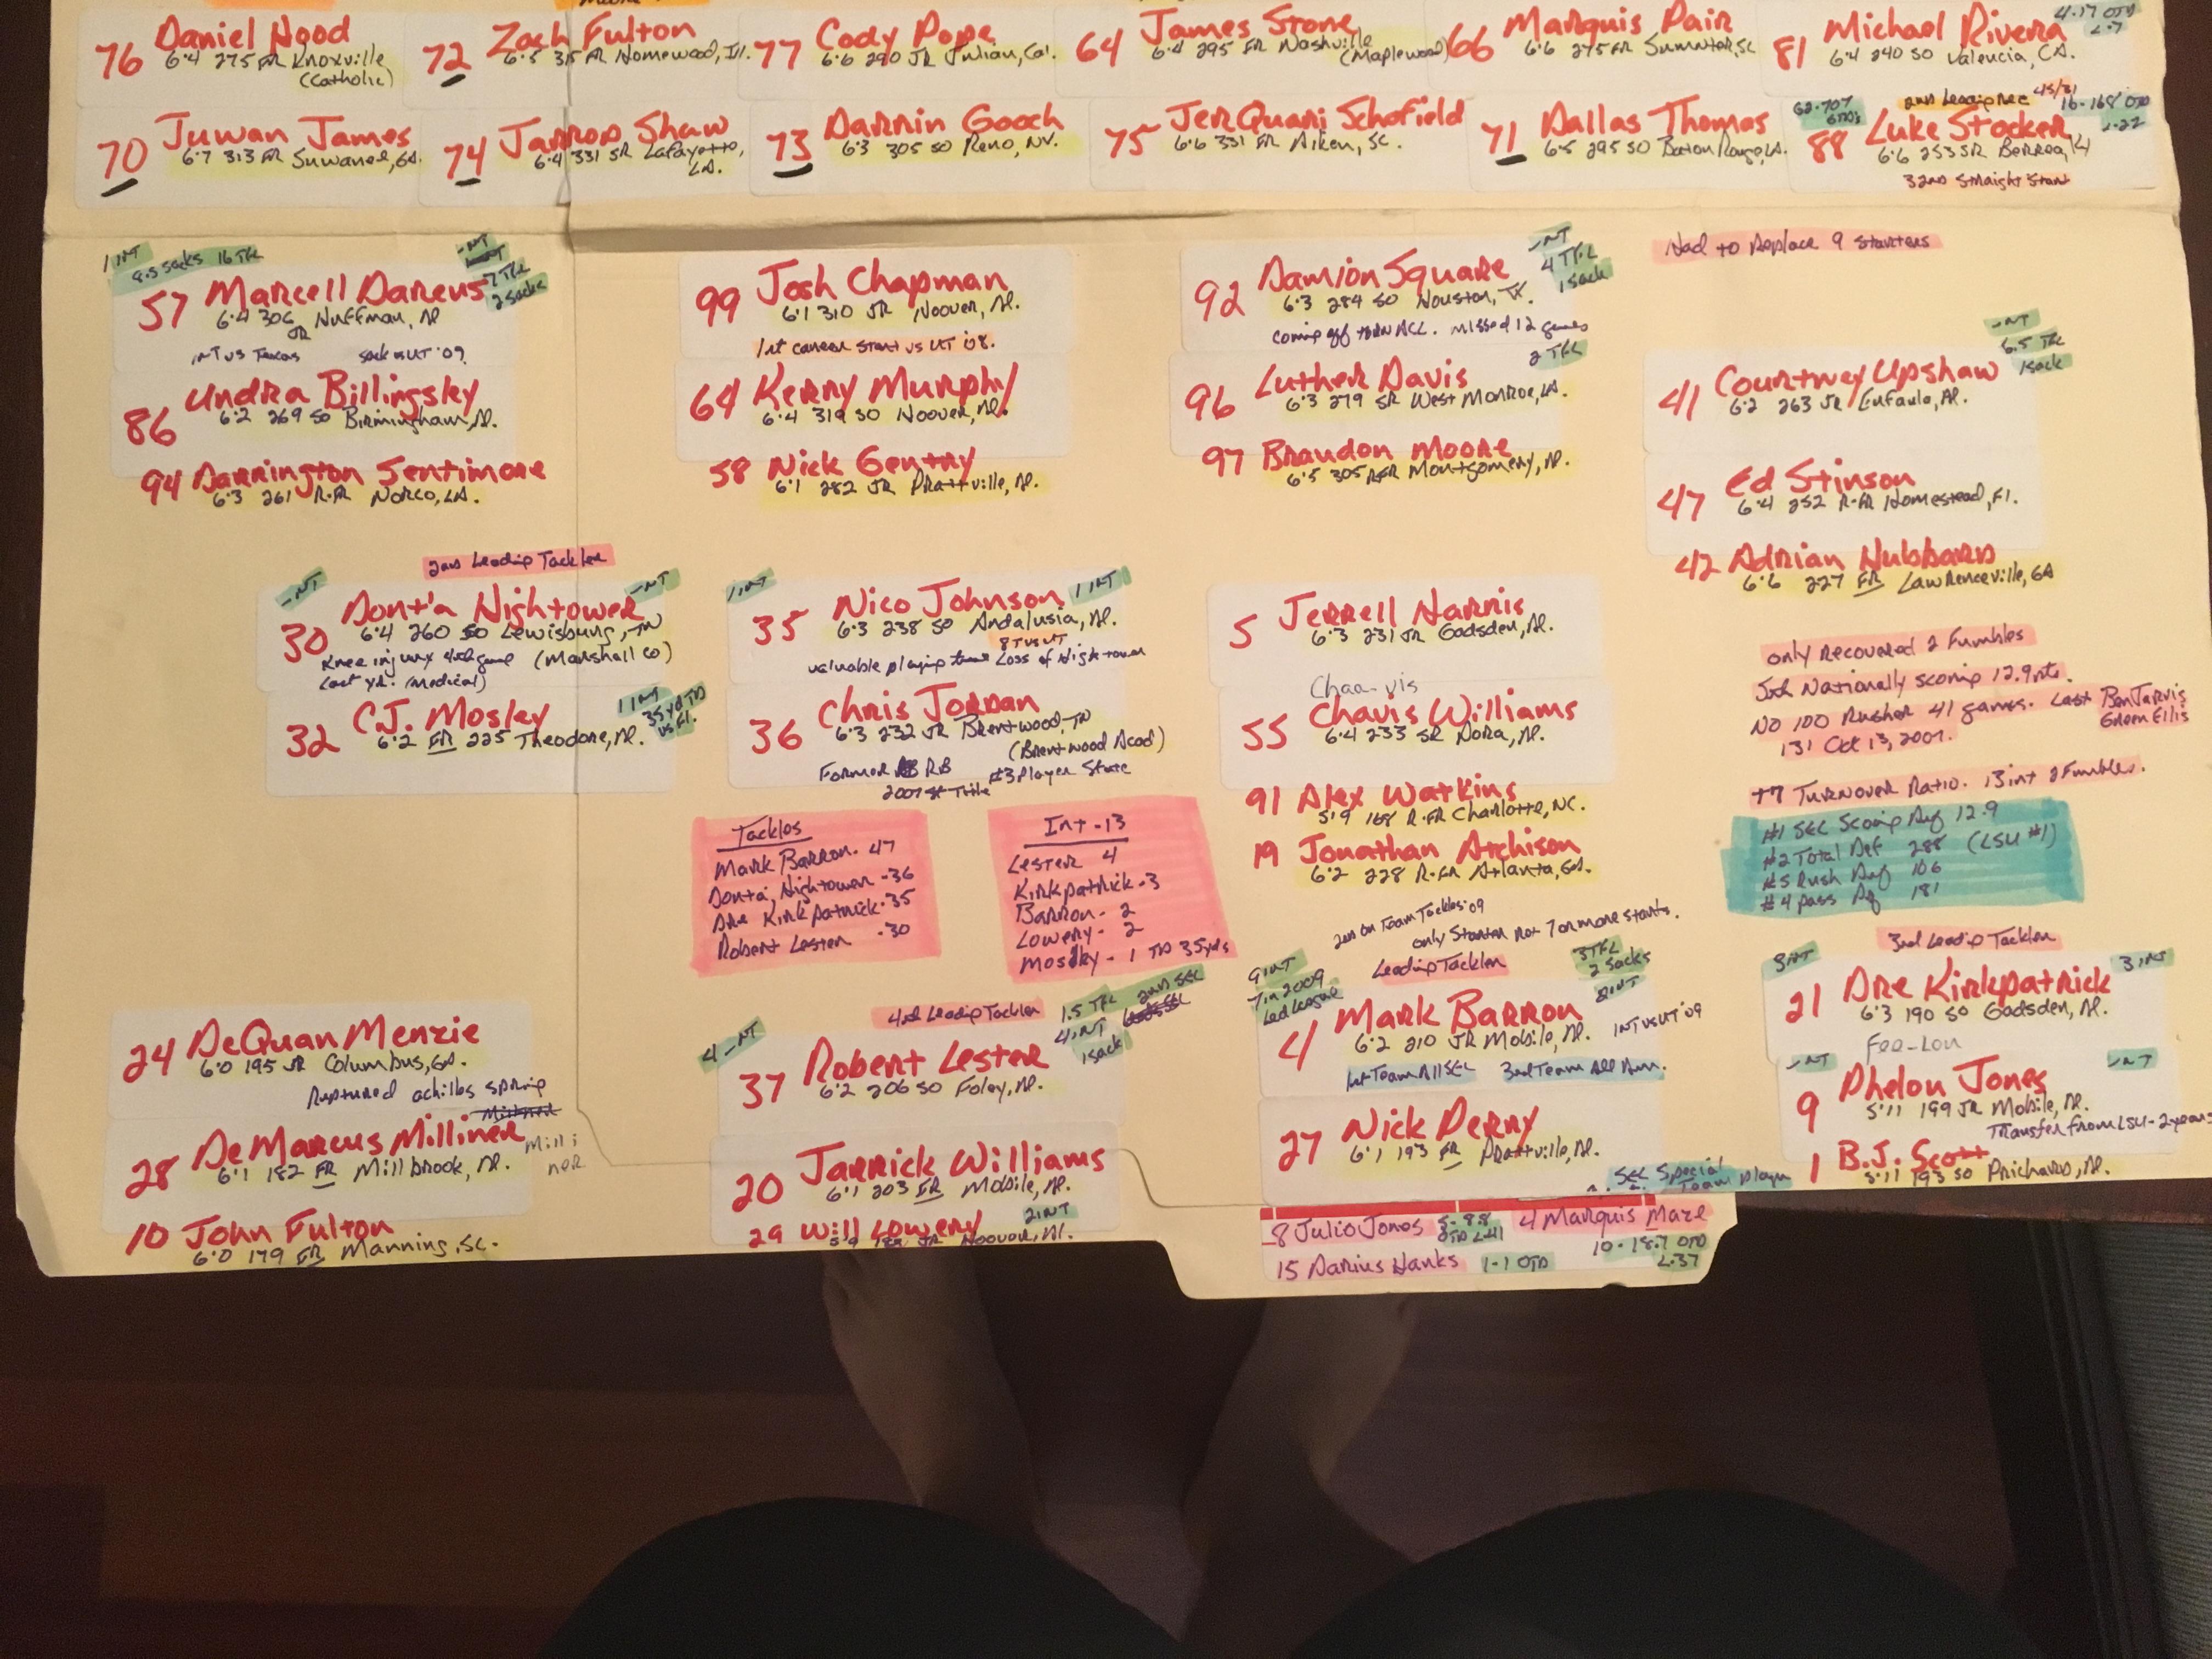 76 Daniel Hood
6.4 275 FR Knoxville
(Catholic)
72 Zach Fulton
6.5 315 FR Homewood, Ill.
77 Cody Pope
6.6 290 JR Julian, Cal.
64 James Stone
6.4 295 FR Nashville
(Maplewood)
66 Marquis Pair
6.6 275 FR Sumuter, SC
81 Michael Rivera
6.4 240 SO Valencia, CA.
4.17 OTD
L.7
70 Juwan James
6.7 313 FR Suwanee, GA.
74 Jarrod Shaw
6.4 331 SR Lafayette,
LA.
73 Darrin Gooch
6.3 305 SO Reno, NV.
75 JerQuari Schofield
6.6 331 FR Aiken, SC.
71 Dallas Thomas
6.5 295 SO Baton Rouge, LA.
62.707
6TD's
2nd Leading Rec
16-168 OTD
L.22
88 Luke Stocker
6.6 253 SR Berrea, Ky
32nd Straight Start
1 INT
9.5 sacks 16 TFL
-INT
7 TFL
2 sacks
57 Marcell Dareus
6.4 306 Huffman, Al
JR
INT vs Texas sack vs UT '09
99 Josh Chapman
6.1 310 JR Hoover, Al.
1st career start vs UT '08.
-INT
4 TFL
1 sack
92 Damion Square
6.3 284 SO Houston, TX.
coming off torn ACL. missed 12 games
Had to Replace 9 starters
86 Undra Billingsley
6.2 269 SO Birmingham, Al.
64 Kerry Murphy
6.4 319 SO Hoover, Al.
2 TFL
96 Luther Davis
6.3 279 SR West Monroe, LA.
-INT
6.5 TFL
1 sack
41 Courtney Upshaw
6.2 263 JR Eufaula, Al.
94 Darrington Sentimore
6.3 261 R-FR Norco, LA.
58 Nick Gentry
6.1 282 JR Prattville, Al.
97 Brandon Moore
6.5 305 RFR Montgomery, Al.
47 Ed Stinson
6.4 252 R-FR Homestead, Fl.
42 Adrian Hubbard
6.6 227 FR Lawrenceville, GA
2nd Leading Tackler
-INT
-INT
30 Dont'a Hightower
6.4 260 SO Lewisburg, TN
Knee injury 4th game (Marshall Co)
Last yr. (medical)
1 INT
1 INT
35 Nico Johnson
6.3 238 SO Andalusia, Al.
8 T vs UT
valuable playing time Loss of Hightower
5 Jerrell Harris
6.3 231 JR Gadsden, Al.
only recovered 2 Fumbles
5th Nationally scoring 12.9 pts.
No 100 Rusher 41 games. Last BenJarvis
Green Ellis
131 Oct 13, 2007.
32 C.J. Mosley
6.2 FR 225 Theodore, Al.
1 INT
35 yd TD
vs Fl.
36 Chris Jordan
6.3 232 JR Brentwood, TN
(Brentwood Acad)
Former RB #3 Player State
2007 St Title
Chaa-vis
55 Chavis Williams
6.4 233 SR Dora, Al.
+7 Turnover Ratio. 13 int 2 Fumbles.
91 Alex Watkins
5.9 168 R-FR Charlotte, NC.
19 Jonathan Atchison
6.2 228 R-FR Atlanta, Ga.
#1 SEC Scoring Def 12.9
#2 Total Def 288 (LSU #1)
#5 Rush Def 106
#4 Pass Def 181
Tackles
Mark Barron. 47
Dont'a, Hightower -36
Dre Kirkpatrick. 35
Robert Lester -30
Int -13
Lester 4
Kirkpatrick -3
Barron - 2
Lowery - 2
Mosley - 1 TD 35 yds
24 DeQuan Menzie
6.0 195 JR Columbus, GA.
Ruptured achilles spring
4th Leading Tackler
4 -INT
1.5 TFL 2nd SEC
4 INT
1 sack
37 Robert Lester
6.2 206 SO Foley, Al.
2nd on Team Tackles '09
only Starter not 7 or more starts.
9 INT
7 in 2009
Led League
Leading Tackler
3 TFL
2 sacks
2 INT
4 Mark Barron
6.2 210 JR Mobile, Al.
INT vs UT '09
1st Team All SEC 3rd Team All Am.
3rd Leading Tackler
3 INT
3 INT
21 Dre Kirkpatrick
6.3 190 SO Gadsden, Al.
28 DeMarcus Milliner
Milli
ner
6.1 182 FR Millbrook, Al.
20 Jarrick Williams
6.1 203 FR Mobile, Al.
27 Nick Perry
6.1 193 FR Prattville, Al.
Fee-Lon
-INT
-INT
9 Phelon Jones
5.11 199 JR Mobile, Al.
Transfer from LSU - 2 years
10 John Fulton
6.0 179 FR Manning, SC.
29 Will Lowery 2 INT
JR Hoover, Al.
1 B.J. Scott
5.11 193 SO Prichard, Al.
SEC Special
Team Player
8 Julio Jones 5-88
0TD L.41
4 Marquis Maze
10-18.7 OTD
L.37
15 Darius Hanks 1-1 OTD